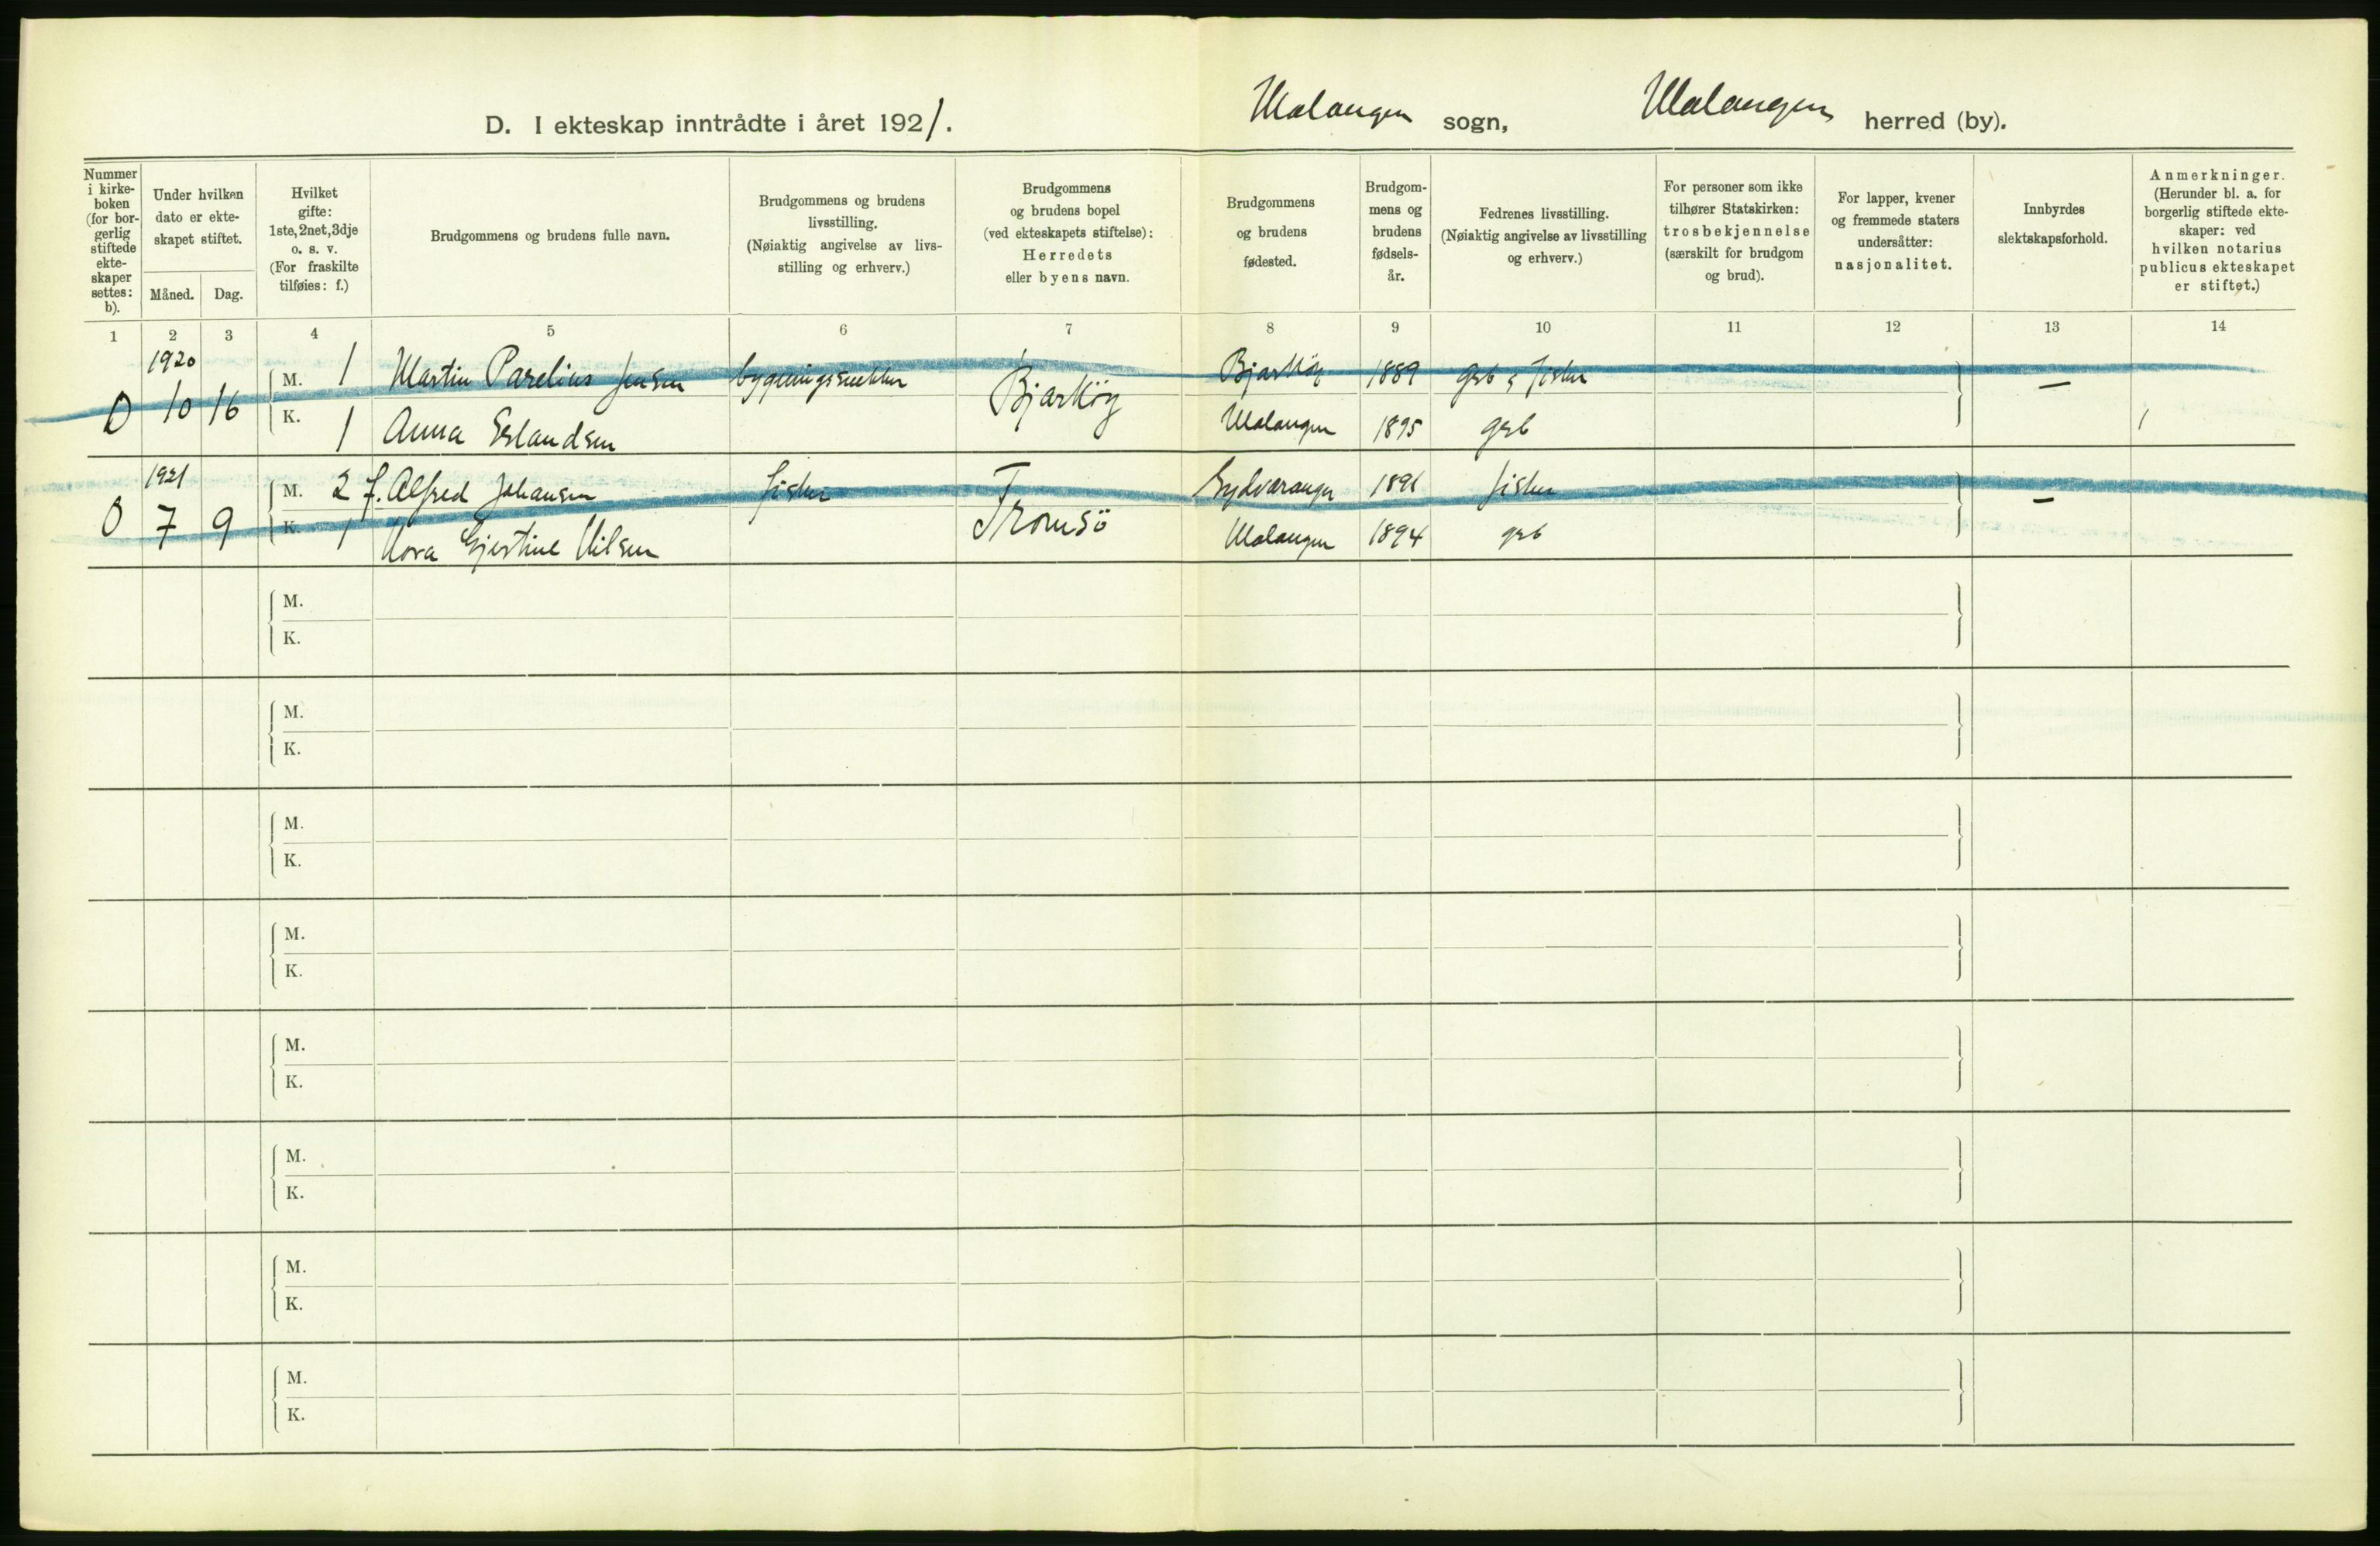 D. I ekteskap inntrådte i året 1921. Malangen sogn, Malangen herred (by).
Nummer i kirke- boken (for bor- gerlig stiftede ekte- skaper settes: b).
Under hvilken dato er ekte- skapet stiftet.
Måned. Dag.
Hvilket gifte: 1ste, 2net, 3dje o. s. v. (For fraskilte tilføies: f.)
Brudgommens og brudens fulle navn.
Brudgommens og brudens livsstilling. (Nøiaktig angivelse av livs- stilling og erhverv.)
Brudgommens og brudens bopel (ved ekteskapets stiftelse): Herredets eller byens navn.
Brudgommens og brudens fødested.
Brudgom- mens og brudens fødsels- år.
Fedrenes livsstilling. (Nøiaktig angivelse av livsstilling og erhverv.)
For personer som ikke tilhører Statskirken: trosbekjennelse (særskilt for brudgom og brud).
For lapper, kvener og fremmede staters undersåtter: nasjonalitet.
Innbyrdes slektskapsforhold.
Anmerkninger. (Herunder bl. a. for borgerlig stiftede ekte- skaper: ved hvilken notarius publicus ekteskapet er stiftet.)
1 2 3 4 5 6 7 8 9 10 11 12 13 14
1920
0 10 16 M. 1 Martin Parelius Jensen bygningssnekker Bjarköy Bjarköy 1889 grb & fisker —
K. 1 Anna Erlandsen Malangen 1895 grb
1921
0 7 9 M. 2 f. Alfred Johansen fisker Tromsö Sydvaranger 1891 fisker —
K. 1 Nora Gjertine Nilsen Malangen 1894 grb
M.
K.
M.
K.
M.
K.
M.
K.
M.
K.
M.
K.
M.
K.
M.
K.